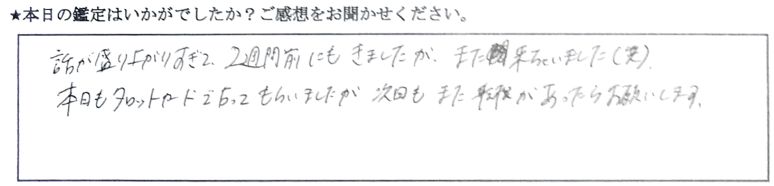 ★本日の鑑定はいかがでしたか？ご感想をお聞かせください。
話が盛り上がりすぎて、2週間前にもきましたが、また来ちゃいました(笑)。
本日もタロットカードで占ってもらいましたが次回もまた機会があったらお願いします。